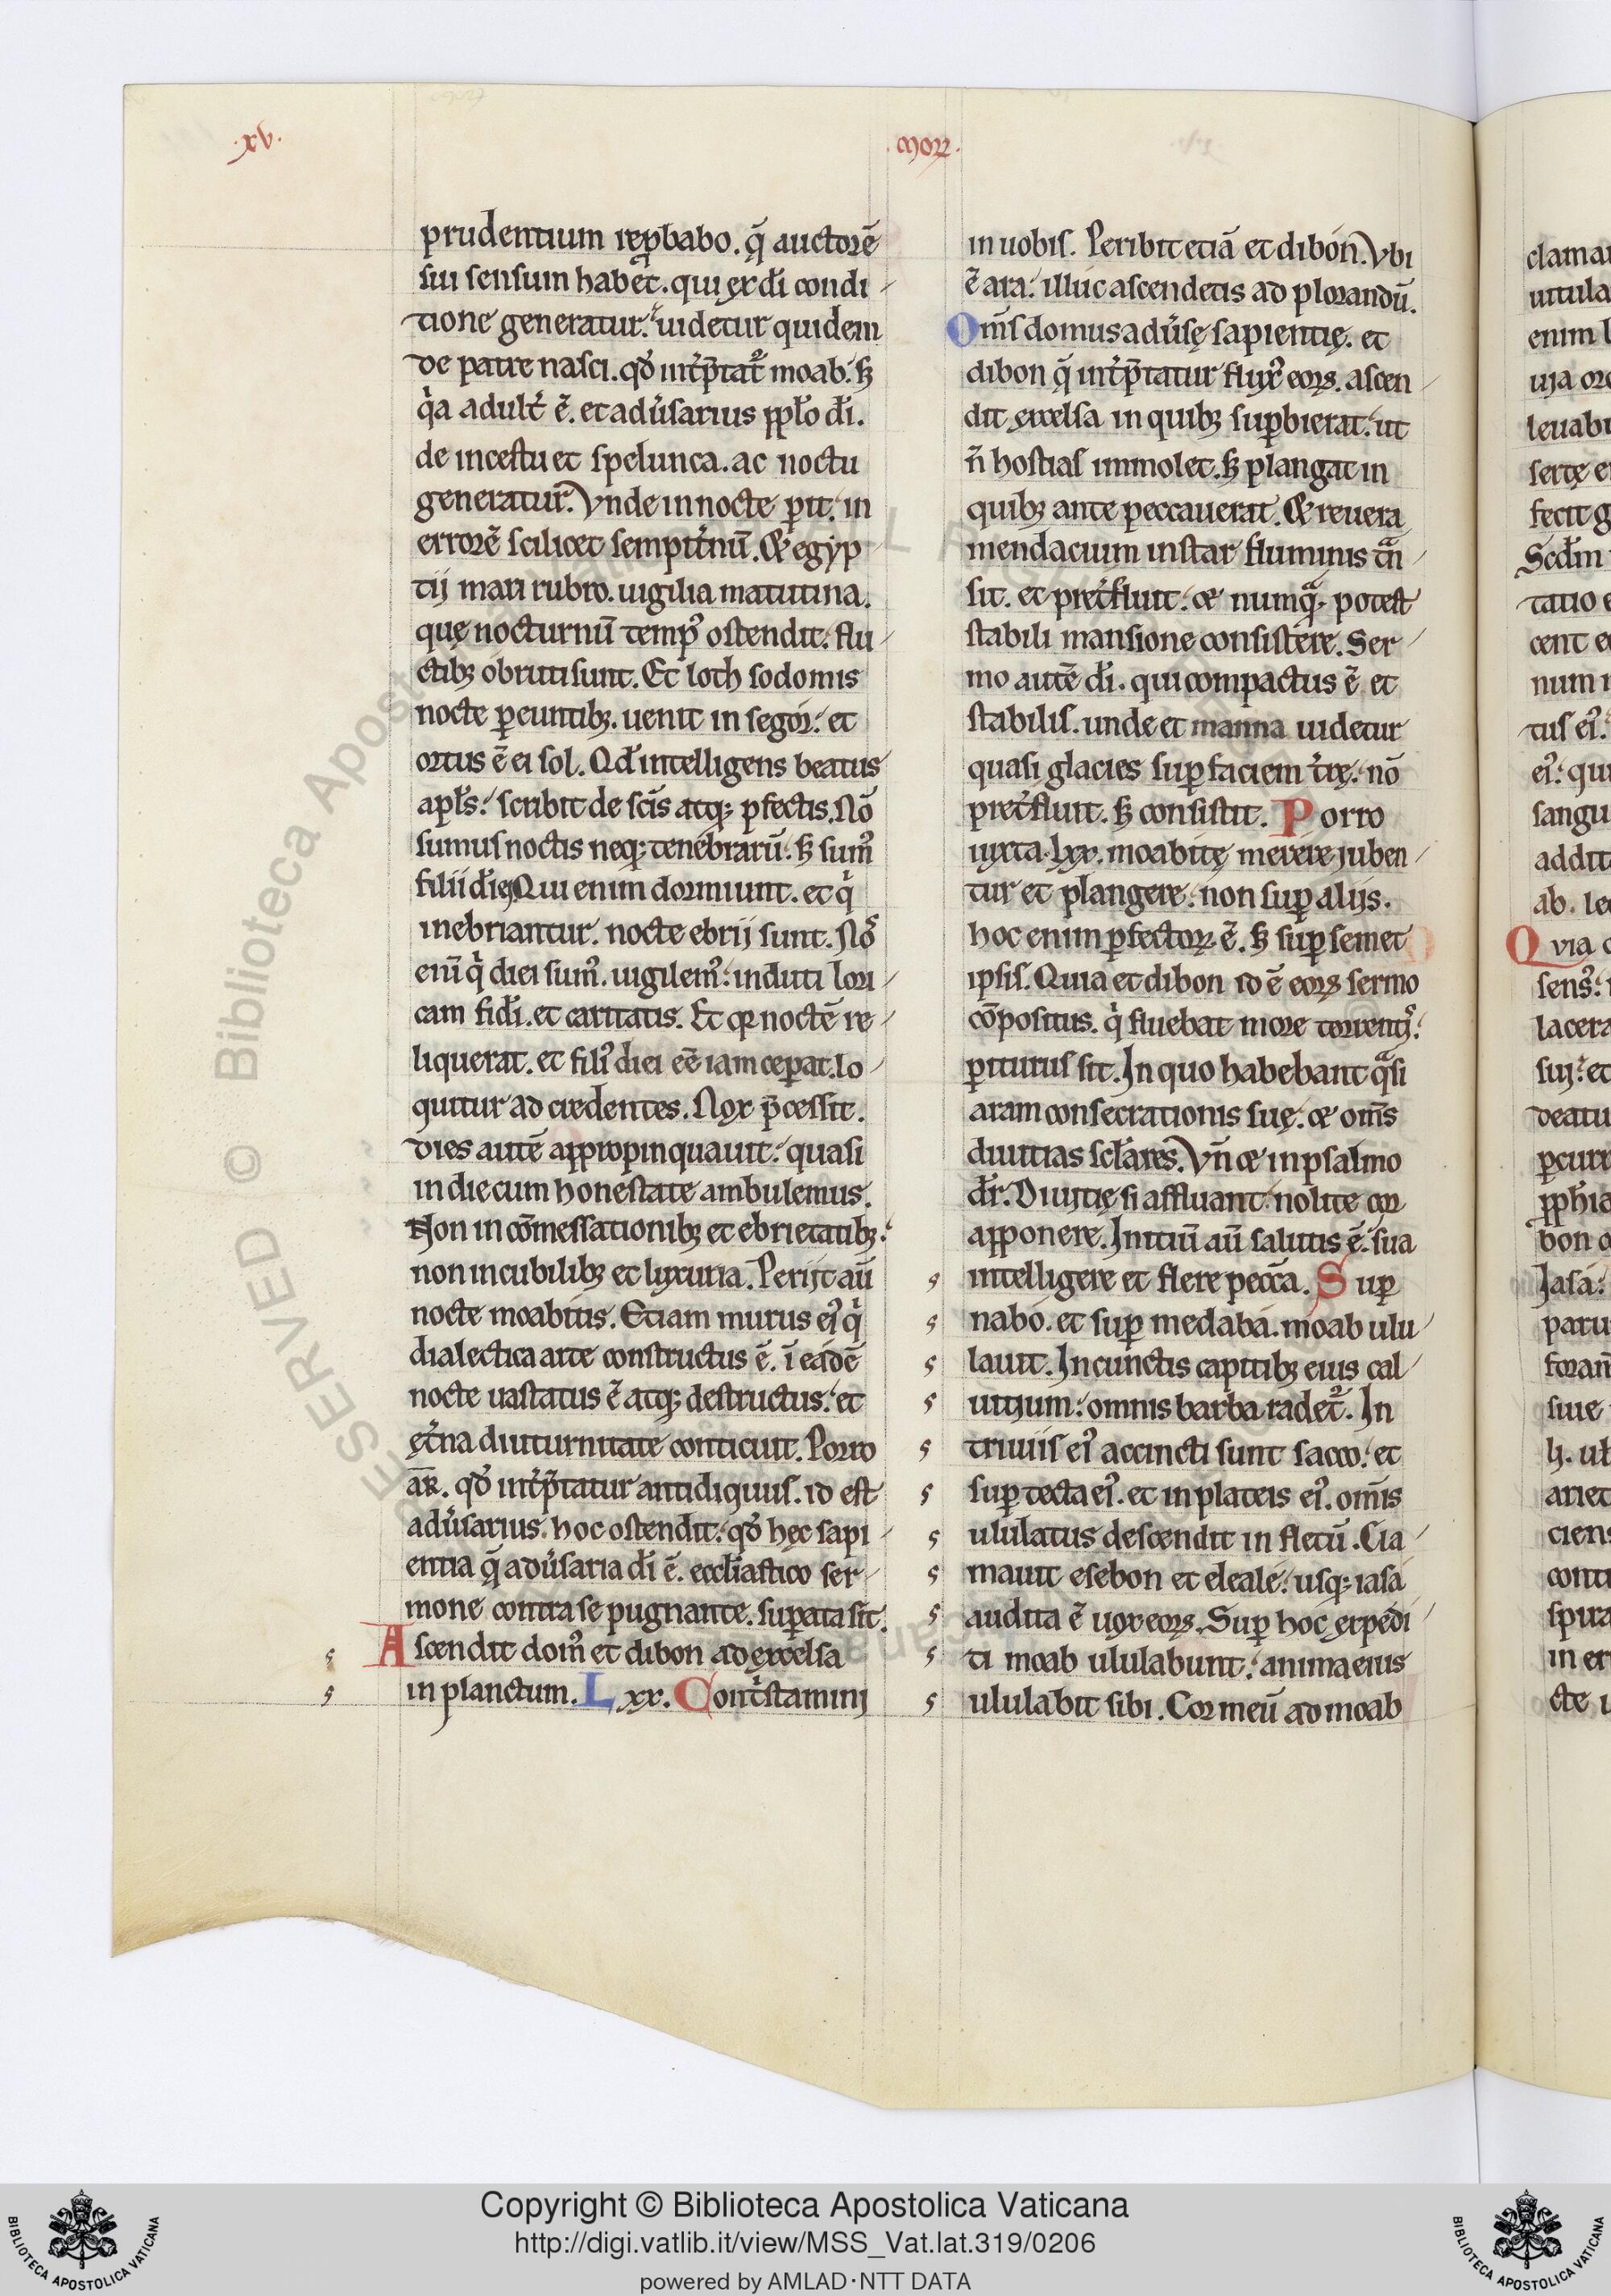 .xv.
.morr.
prudentium reꝓbabo. q̄ auctorē
sui sensum habet᷑. qui ex dī condi
tione generatur. uidetur quidem
de patre nasci. qđ int̓p̄tat᷑ moab. sꝫ
qͥa adult̓ ē. et adu̓sarius ppl̓o dī.
de incestu et spelunca. ac noctu
generatur. Vnde in nocte ꝑit. in
errorē scilicet sempit̓nū. Et egyp
tij mari rubro. uigilia matutina.
quę nocturnū temp᷒ ostendit. flu
ctibꝫ obruti sunt. Et loth sodomis
nocte ꝑeuntibꝫ. uenit in segor. et
ortus ē ei sol. Qđ intelligens beatus
apl̓s. scribit de scīs atqꝫ ꝑfectis. Nō
sumus noctis neqꝫ tenebrarū. sꝫ sum᷒
filii diei. Qui enim dormiunt. et qͥ
inebriantur. nocte ebrij sunt. Nos
enī qͥ diei sum᷒. uigilem᷒. induti lori
cam fidei. et caritatis. Et qꝛ noctē re
liquerat. et fili᷒ diei eē iam ceperat. lo
quitur ad credentes. Nox p̄cessit.
dies autē appropinquauit. quasi
in die cum honestate ambulemus.
Non in cōmessationibꝫ et ebrietatibꝫ.
non in cubilibꝫ et luxuria. Perijt aū
nocte moabitis. Etiam murus ei᷒ qͥ
dialectica arte constructus ē. ī eadē
nocte uastatus ē atqꝫ destructus. et
ęt̓na diuturnitate conticuit. Porro
ar. qđ int̓p̄tatur antidiquus. id est
adu̓sarius. hoc ostendit. qđ hęc sapi
entia q̄ adu̓saria dī ē. eccl̓iastico ser
mone contra se pugnante. suꝑata sit.
Ascendit dom᷒ et dibon ad excelsa
in planctum. Lxx. Cont̓stamini
in uobis. Peribit etiā et dibon. Vbi
ē ara. illuc ascendetis ad plorandū.
Om̄s domus adu̓sę sapientię. et
dibon q̄ int̓p̄tatur flux᷒ eoꝝ. ascen
dit excelsa in quibꝫ suꝑbierat. ut
n̄ hostias immolet. sꝫ plangat in
quibꝫ ante peccauerat. Et reuera
mendacium instar fluminis tͣn
sit. et pret̓fluit. et numqͣ potest
stabili mansione consistere. Ser
mo autē dī. qui compactus ē et
stabilis. unde et manna uidetur
quasi glacies suꝑ faciem t̓rę. nō
pret̓fluit. sꝫ consistit. Porro
iuxta lxx. moabitę merere juben
tur et plangere. non suꝑ alijs.
hoc enim ꝑfectoꝝ ē. sꝫ suꝑ semet
ipsis. Quia et dibon id ē eoꝝ sermo
cōpositus. qͥ fluebat more torrentis.
ꝑiturus sit. In quo habebant qͣsi
aram consecrationis suę. et om̄s
diuitias scl̓ares. Vn̄ et in psalmo
dr̄. Diuitię si affluant. nolite cor
apponere. Initiū aū salutis ē. sua
intelligere et flere pecc̄a. Suꝑ
nabo. et suꝑ medaba. moab ulu
lauit. In cunctis capitibꝫ eius cal
uitium. omnis barba radet᷑. In
triuiis ei᷒ accincti sunt sacco. et
suꝑ tecta ei᷒. et in plateis ei᷒. om̄is
ululatus descendit in fletū. Cla
mauit esebon et eleale. usqꝫ iasa
audita ē uox eoꝝ. Suꝑ hoc expedi
ti moab ululabunt. anima eius
ululabit sibi. Cor meū ad moab
Copyright © Biblioteca Apostolica Vaticana
http://digi.vatlib.it/view/MSS_Vat.lat.319/0206
powered by AMLAD·NTT DATA